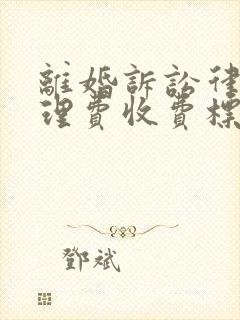 離婚訴訟律
理費收費標
鄧斌